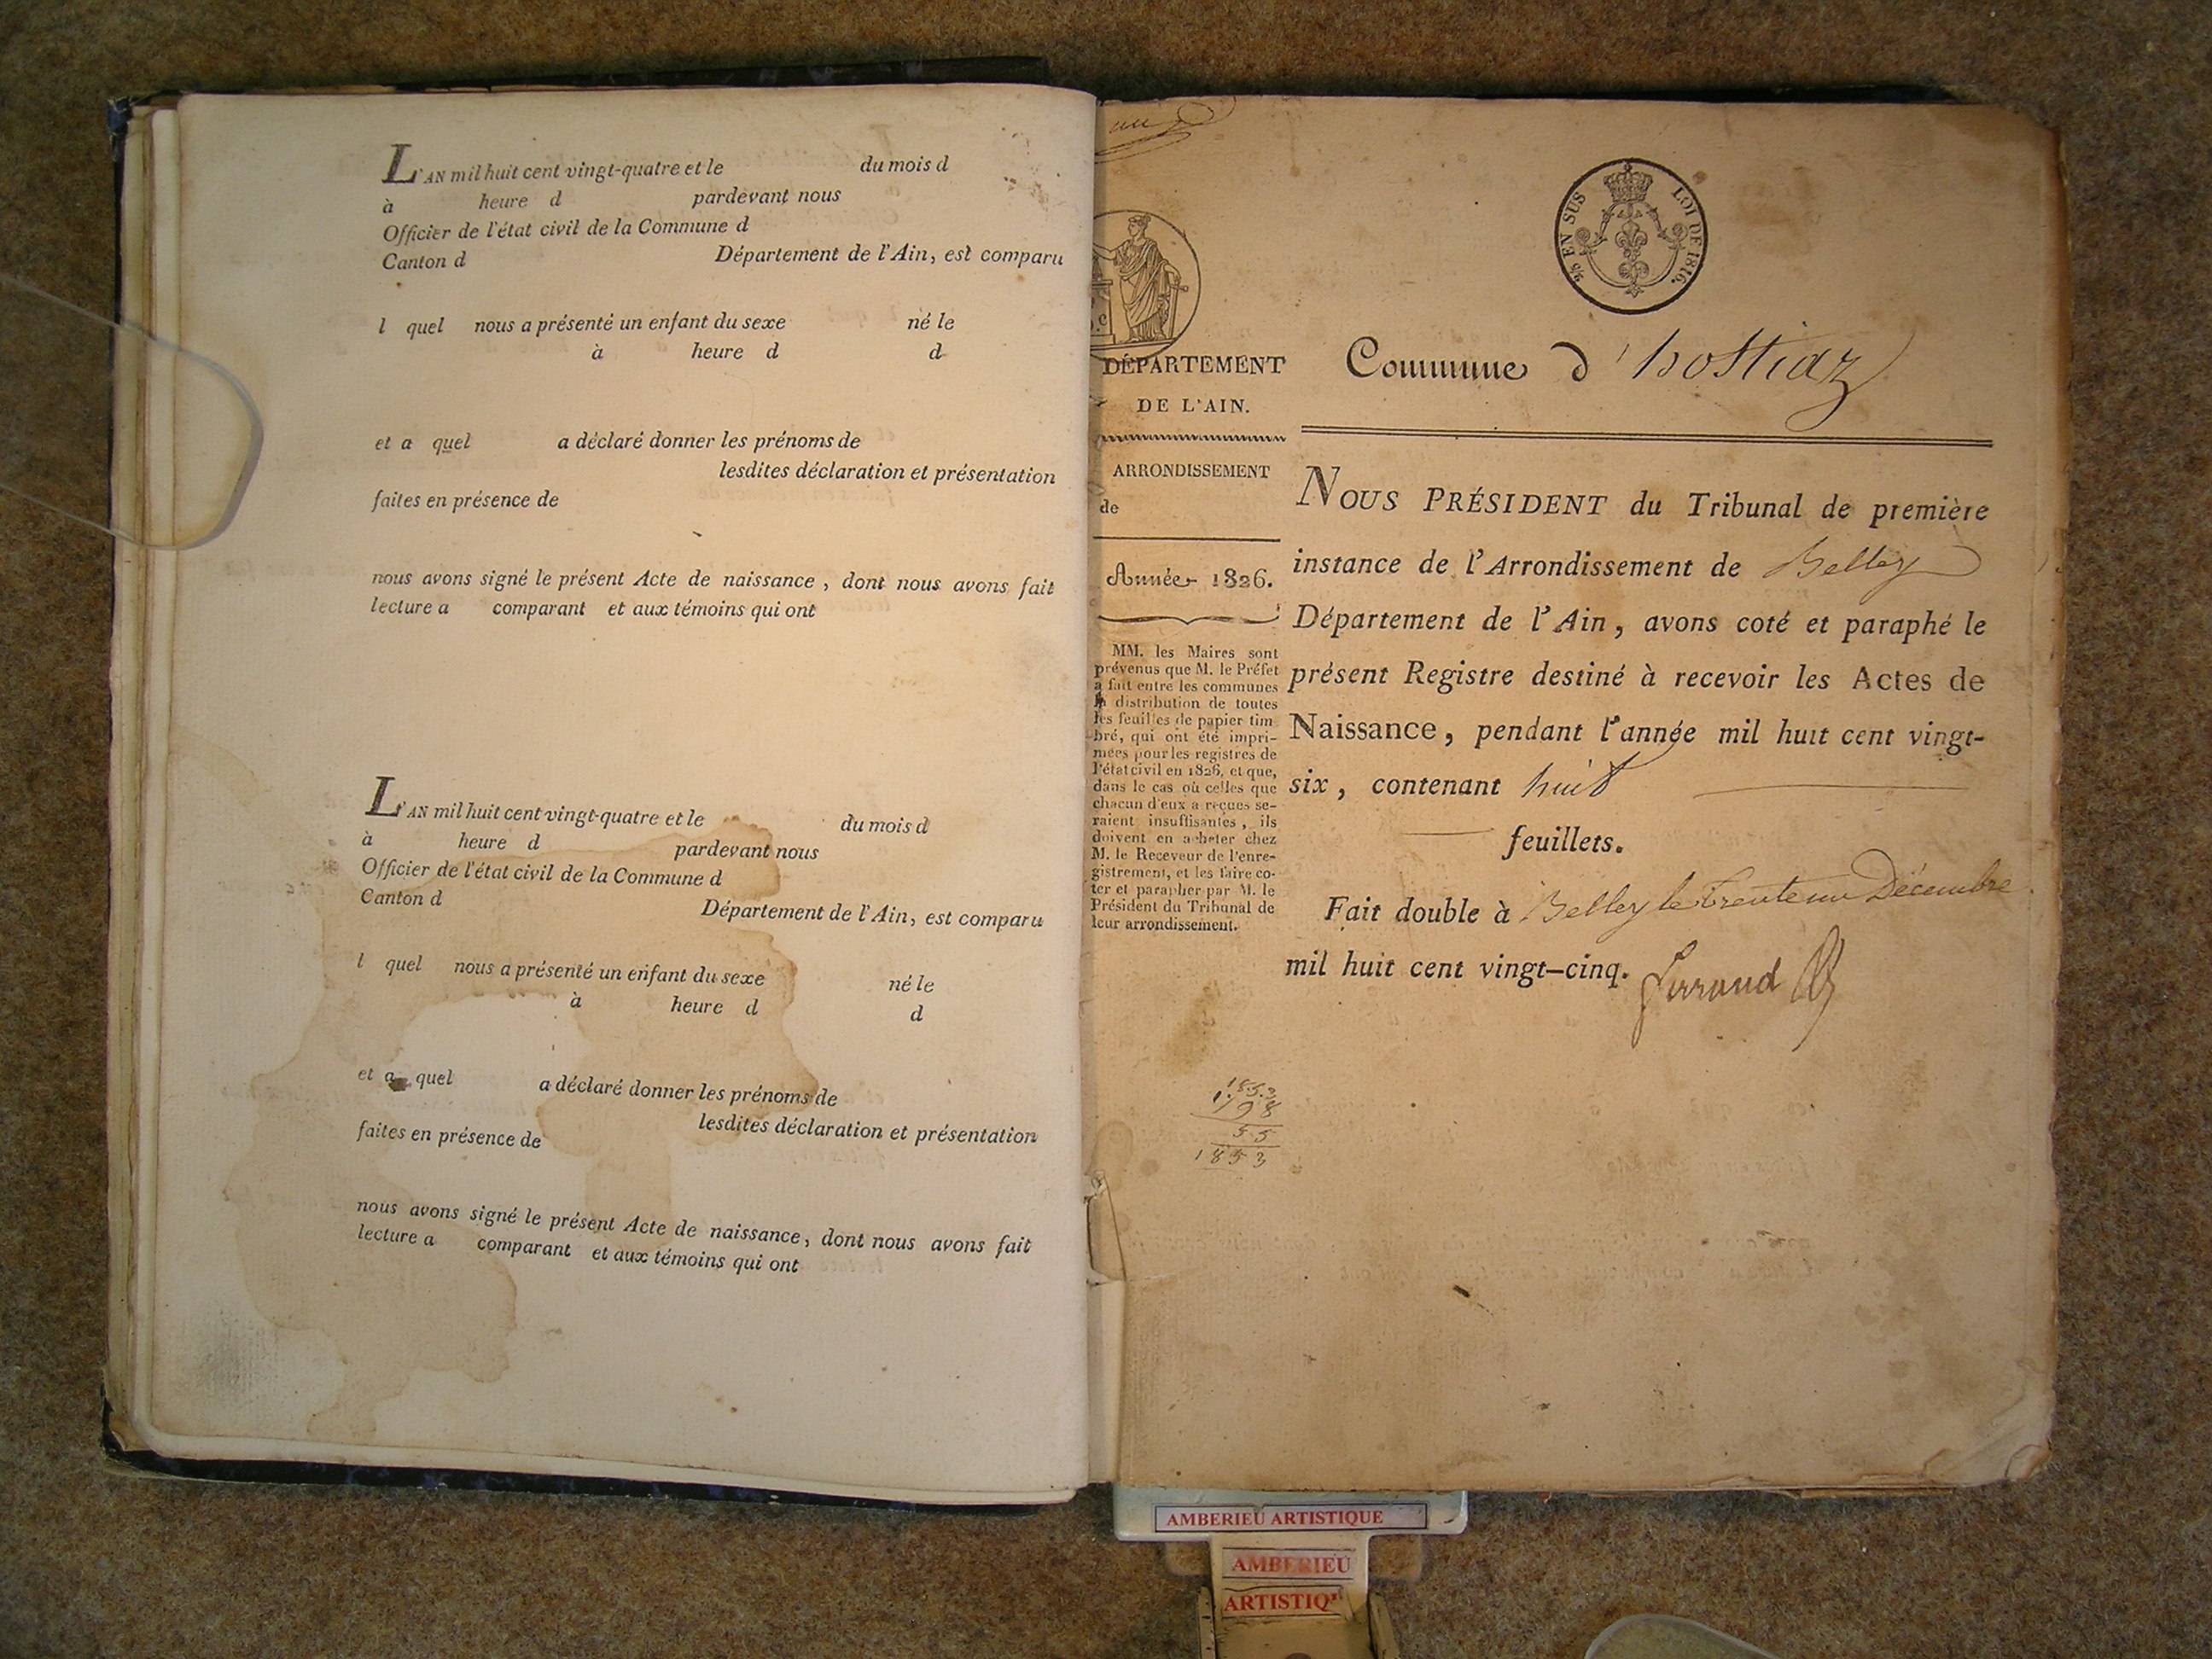 L'AN mil huit cent vingt-quatre et le du mois d
à heure d pardevant nous
Officier de l'état civil de la Commune d
Canton d Département de l'Ain, est comparu
l quel nous a présenté un enfant du sexe né le
à heure d d
et a quel a déclaré donner les prénoms de
lesdites déclaration et présentation
faites en présence de
nous avons signé le présent Acte de naissance, dont nous avons fait
lecture a comparant et aux témoins qui ont
L'AN mil huit cent vingt-quatre et le du mois d
à heure d pardevant nous
Officier de l'état civil de la Commune d
Canton d Département de l'Ain, est comparu
l quel nous a présenté un enfant du sexe né le
à heure d d
et a quel a déclaré donner les prénoms de
lesdites déclaration et présentation
faites en présence de
nous avons signé le présent Acte de naissance, dont nous avons fait
lecture a comparant et aux témoins qui ont
EN SUS LOI DE 1816.
DÉPARTEMENT
DE L'AIN.
ARRONDISSEMENT
de
Année 1826.
MM. les Maires sont
prévenus que M. le Préfet
a fait entre les communes
la distribution de toutes
les feuilles de papier tim-
bré, qui ont été impri-
mées pour les registres de
l'état civil en 1826, et que,
dans le cas où celles que
chacun d'eux a reçues se-
raient insuffisantes, ils
doivent en acheter chez
M. le Receveur de l'enre-
gistrement, et les faire co-
ter et parapher par M. le
Président du Tribunal de
leur arrondissement.
1853
1798
55
1853
Commune d'hostiaz
NOUS PRÉSIDENT du Tribunal de première
instance de l'Arrondissement de Belley
Département de l'Ain, avons coté et paraphé le
présent Registre destiné à recevoir les Actes de
Naissance, pendant l'année mil huit cent vingt-
six, contenant huit
feuillets.
Fait double à Belley le trente un Décembre
mil huit cent vingt-cinq.
AMBERIEU ARTISTIQUE
AMBERIEU
ARTISTIQ